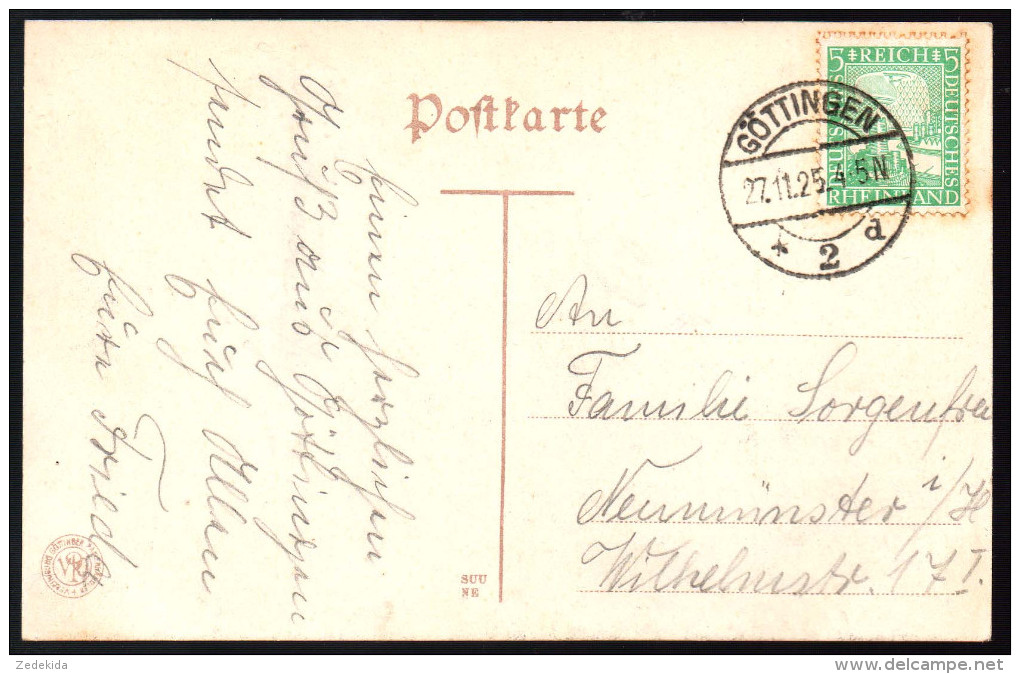 Postkarte
5 REICH 5
DEUTSCHES
DEUTSCHES
RHEINLAND
GÖTTINGEN
27.11.25. 4-5 N
* 2 d
Einen herzlichen
Gruß aus Göttingen
sendet Euch Allen
Eure Frieda
An
Familie Sorgenfrei
Neumünster i/H
Wilhelmstr. 17 I.
SUU
NE
VRG
Zedekida
delcampe.net